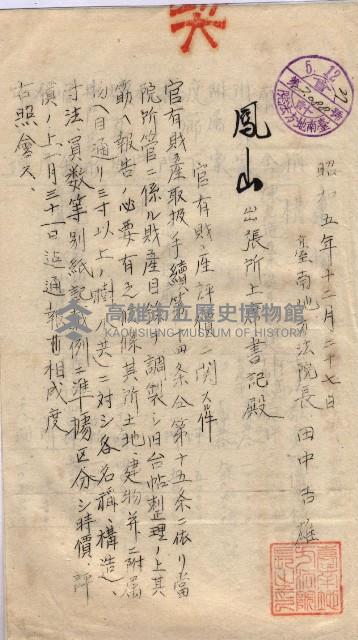 昭和五年十二月二十七日
臺南地方法院長 田中吉雄
鳳山出張所上席書記殿
官有財産評價ニ関スル件
官有財産取扱手續第十四条仝第十五条ニ依リ當
院所管ニ係ル財産目録調製シ旧台帖整理ノ上其
筋ヘ報告ノ必要有之候條其所土地、建物并ニ附属
物(目通リ三寸以上ノ樹木共)ニ対シ各名稱、構造、
寸法、員数等別紙記載例ニ準據区分シ時價、評
價ノ上一月三十一日迄通報相成度
右照會ス、
高雄市立歷史博物館
KAOHSIUNG MUSEUM OF HISTORY
臺南地方法院
5.12